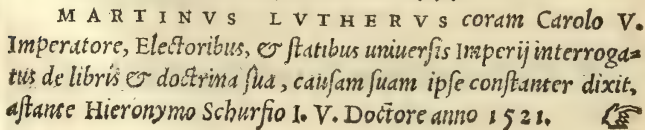 MARTINVS LVTHERVS coram Carolo V.
Imperatore, Electoribus, & ſtatibus uniuerſis Imperij interroga=
tus de libris & doctrina ſua, cauſam ſuam ipſe conſtanter dixit,
aſtante Hieronymo Schurfio I. V. Doctore anno 1521.